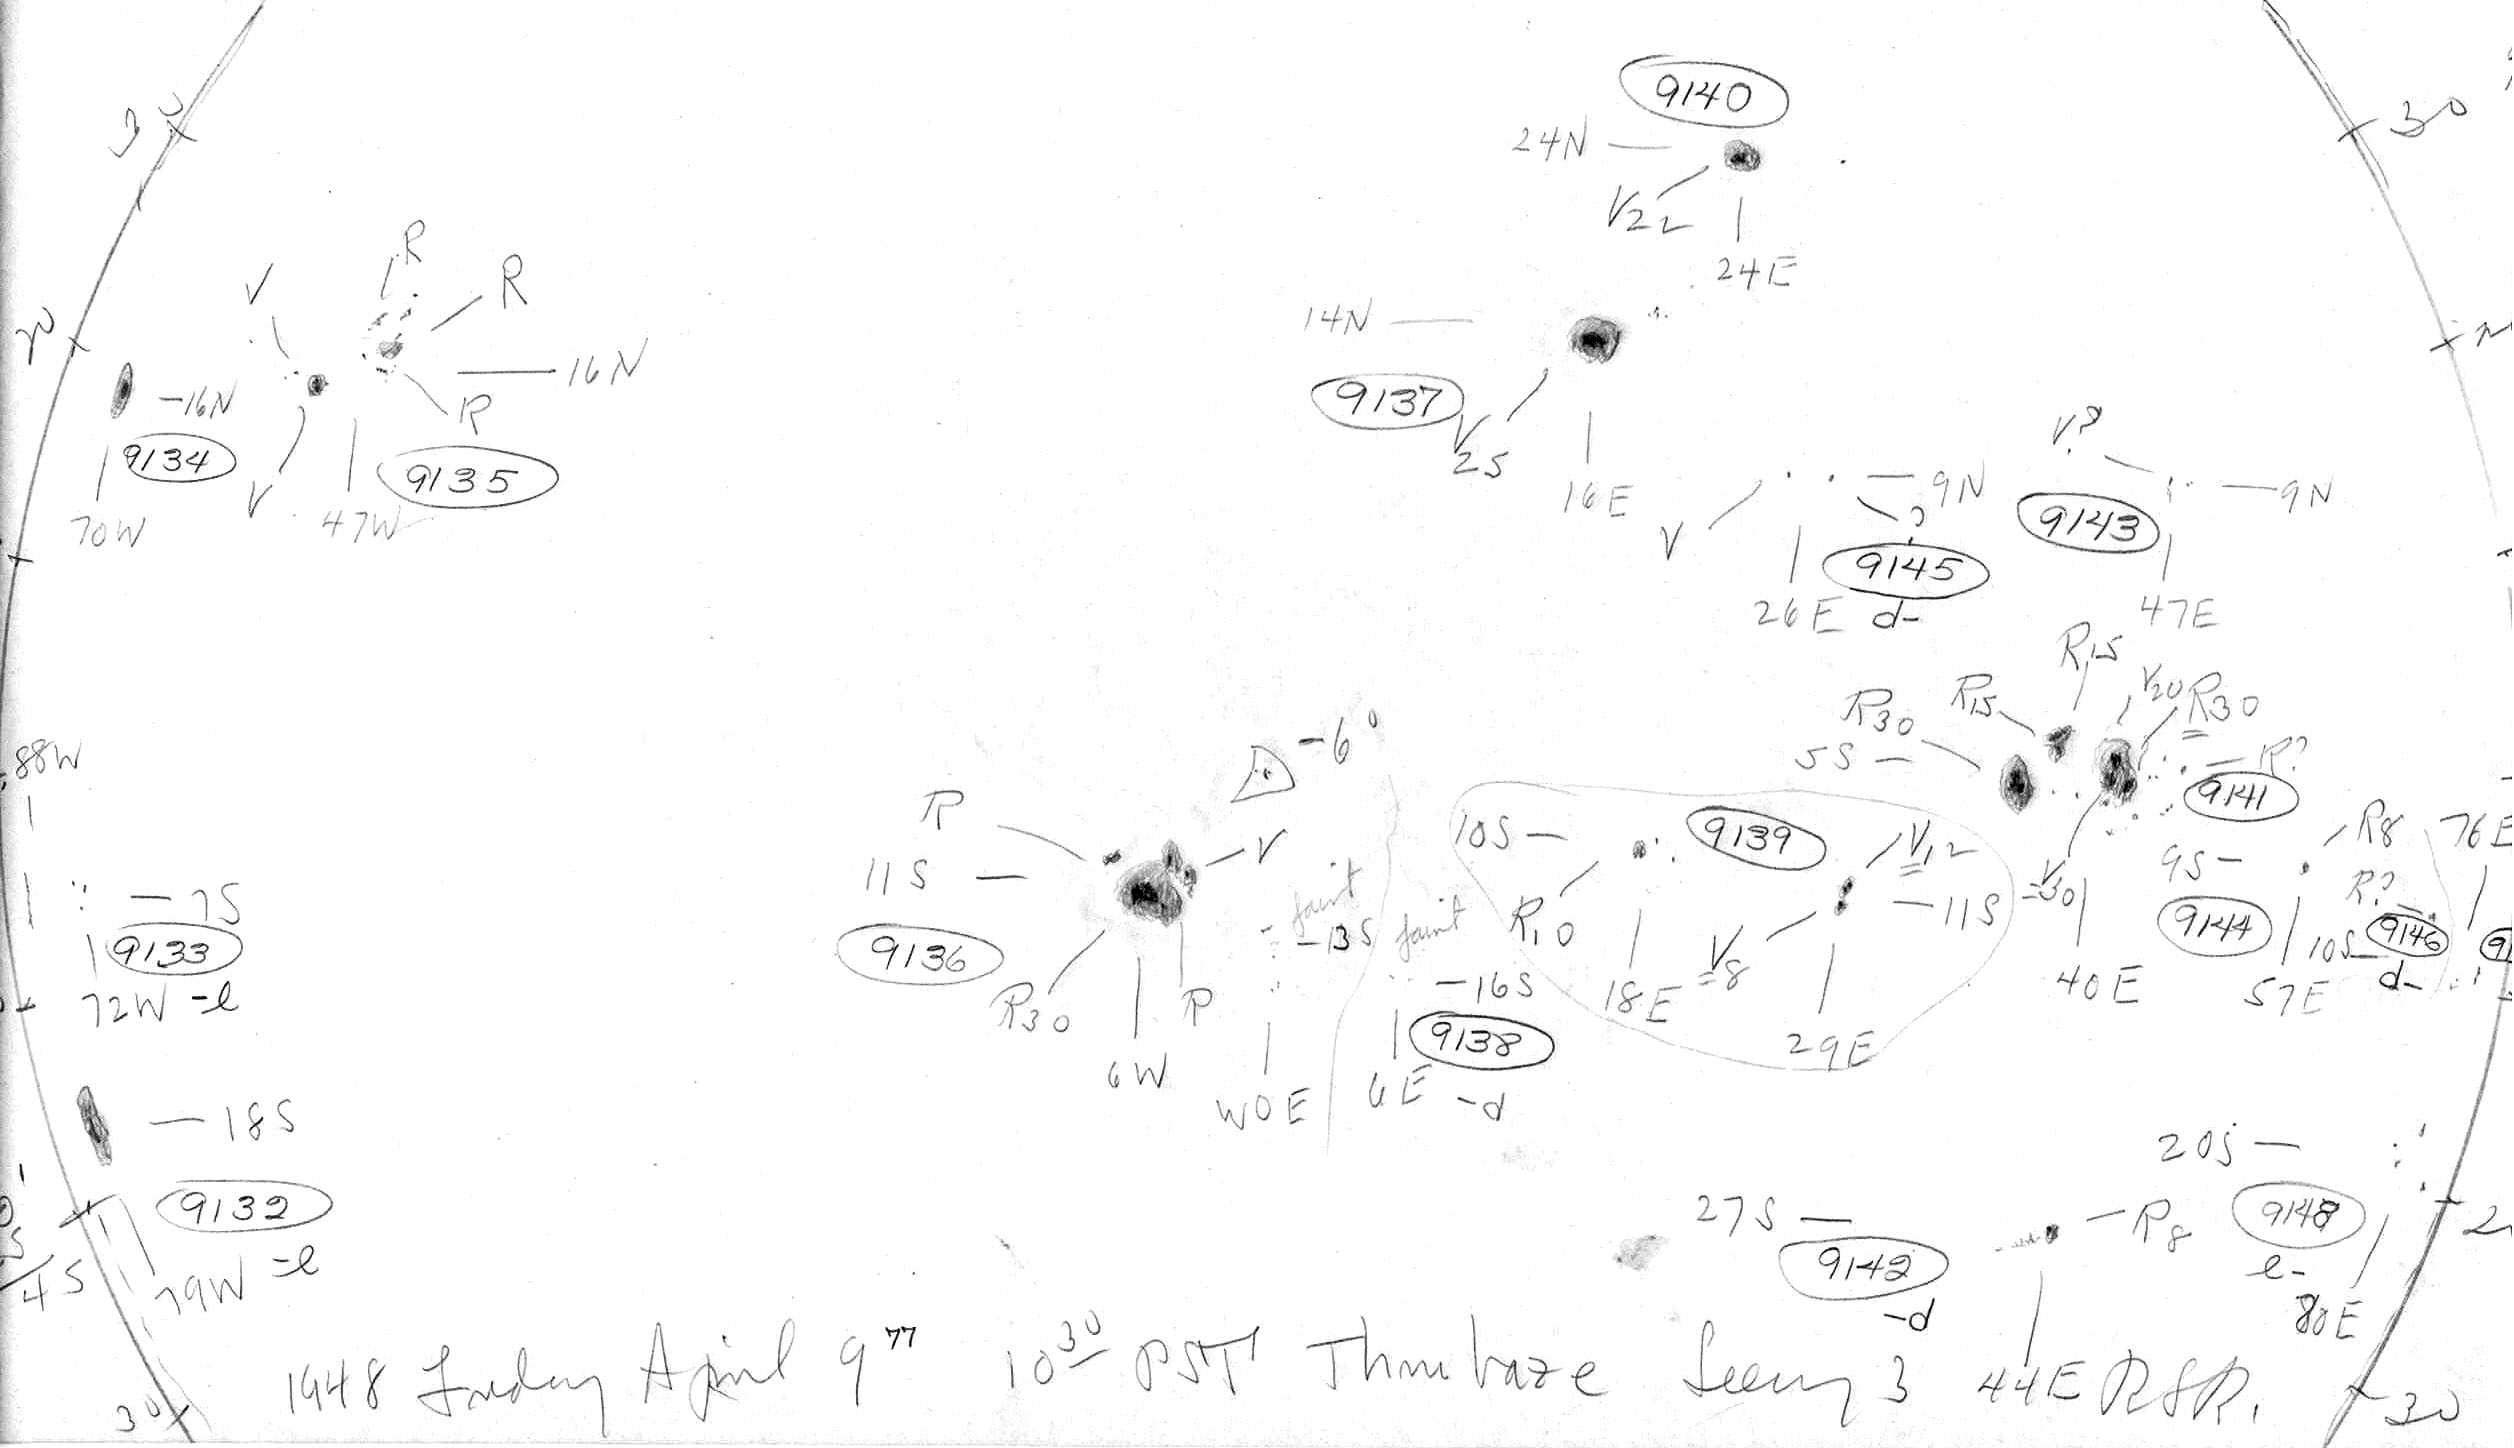 9140
30
30
24N
V22
24E
R
R
V
16N
R
V
9135
47W
20
-16N
9134
70W
14N
9137
V
25
16E
9N
V
?
9145
26E d-
V?
9N
9143
47E
R15
R15
V20
R30
R30
5S
R?
9141
V30
40E
88W
-7S
9133
72W -e
-6°
R
V
11S
9136
R30
R
6W
faint
-13S
W0E
faint
-16S
9138
6E -d
10S
9139
V12
R10
-11S
V8
18E
29E
R8
76E
9S
R?
9144
10S
9146
d-
57E
-18S
9132
79W =e
4S
20S
9148
e-
80E
27S
R8
9142
-d
44E
30
1948 Friday April 9 77 10 30 PST Thru haze Seeing 3 RSR.
30